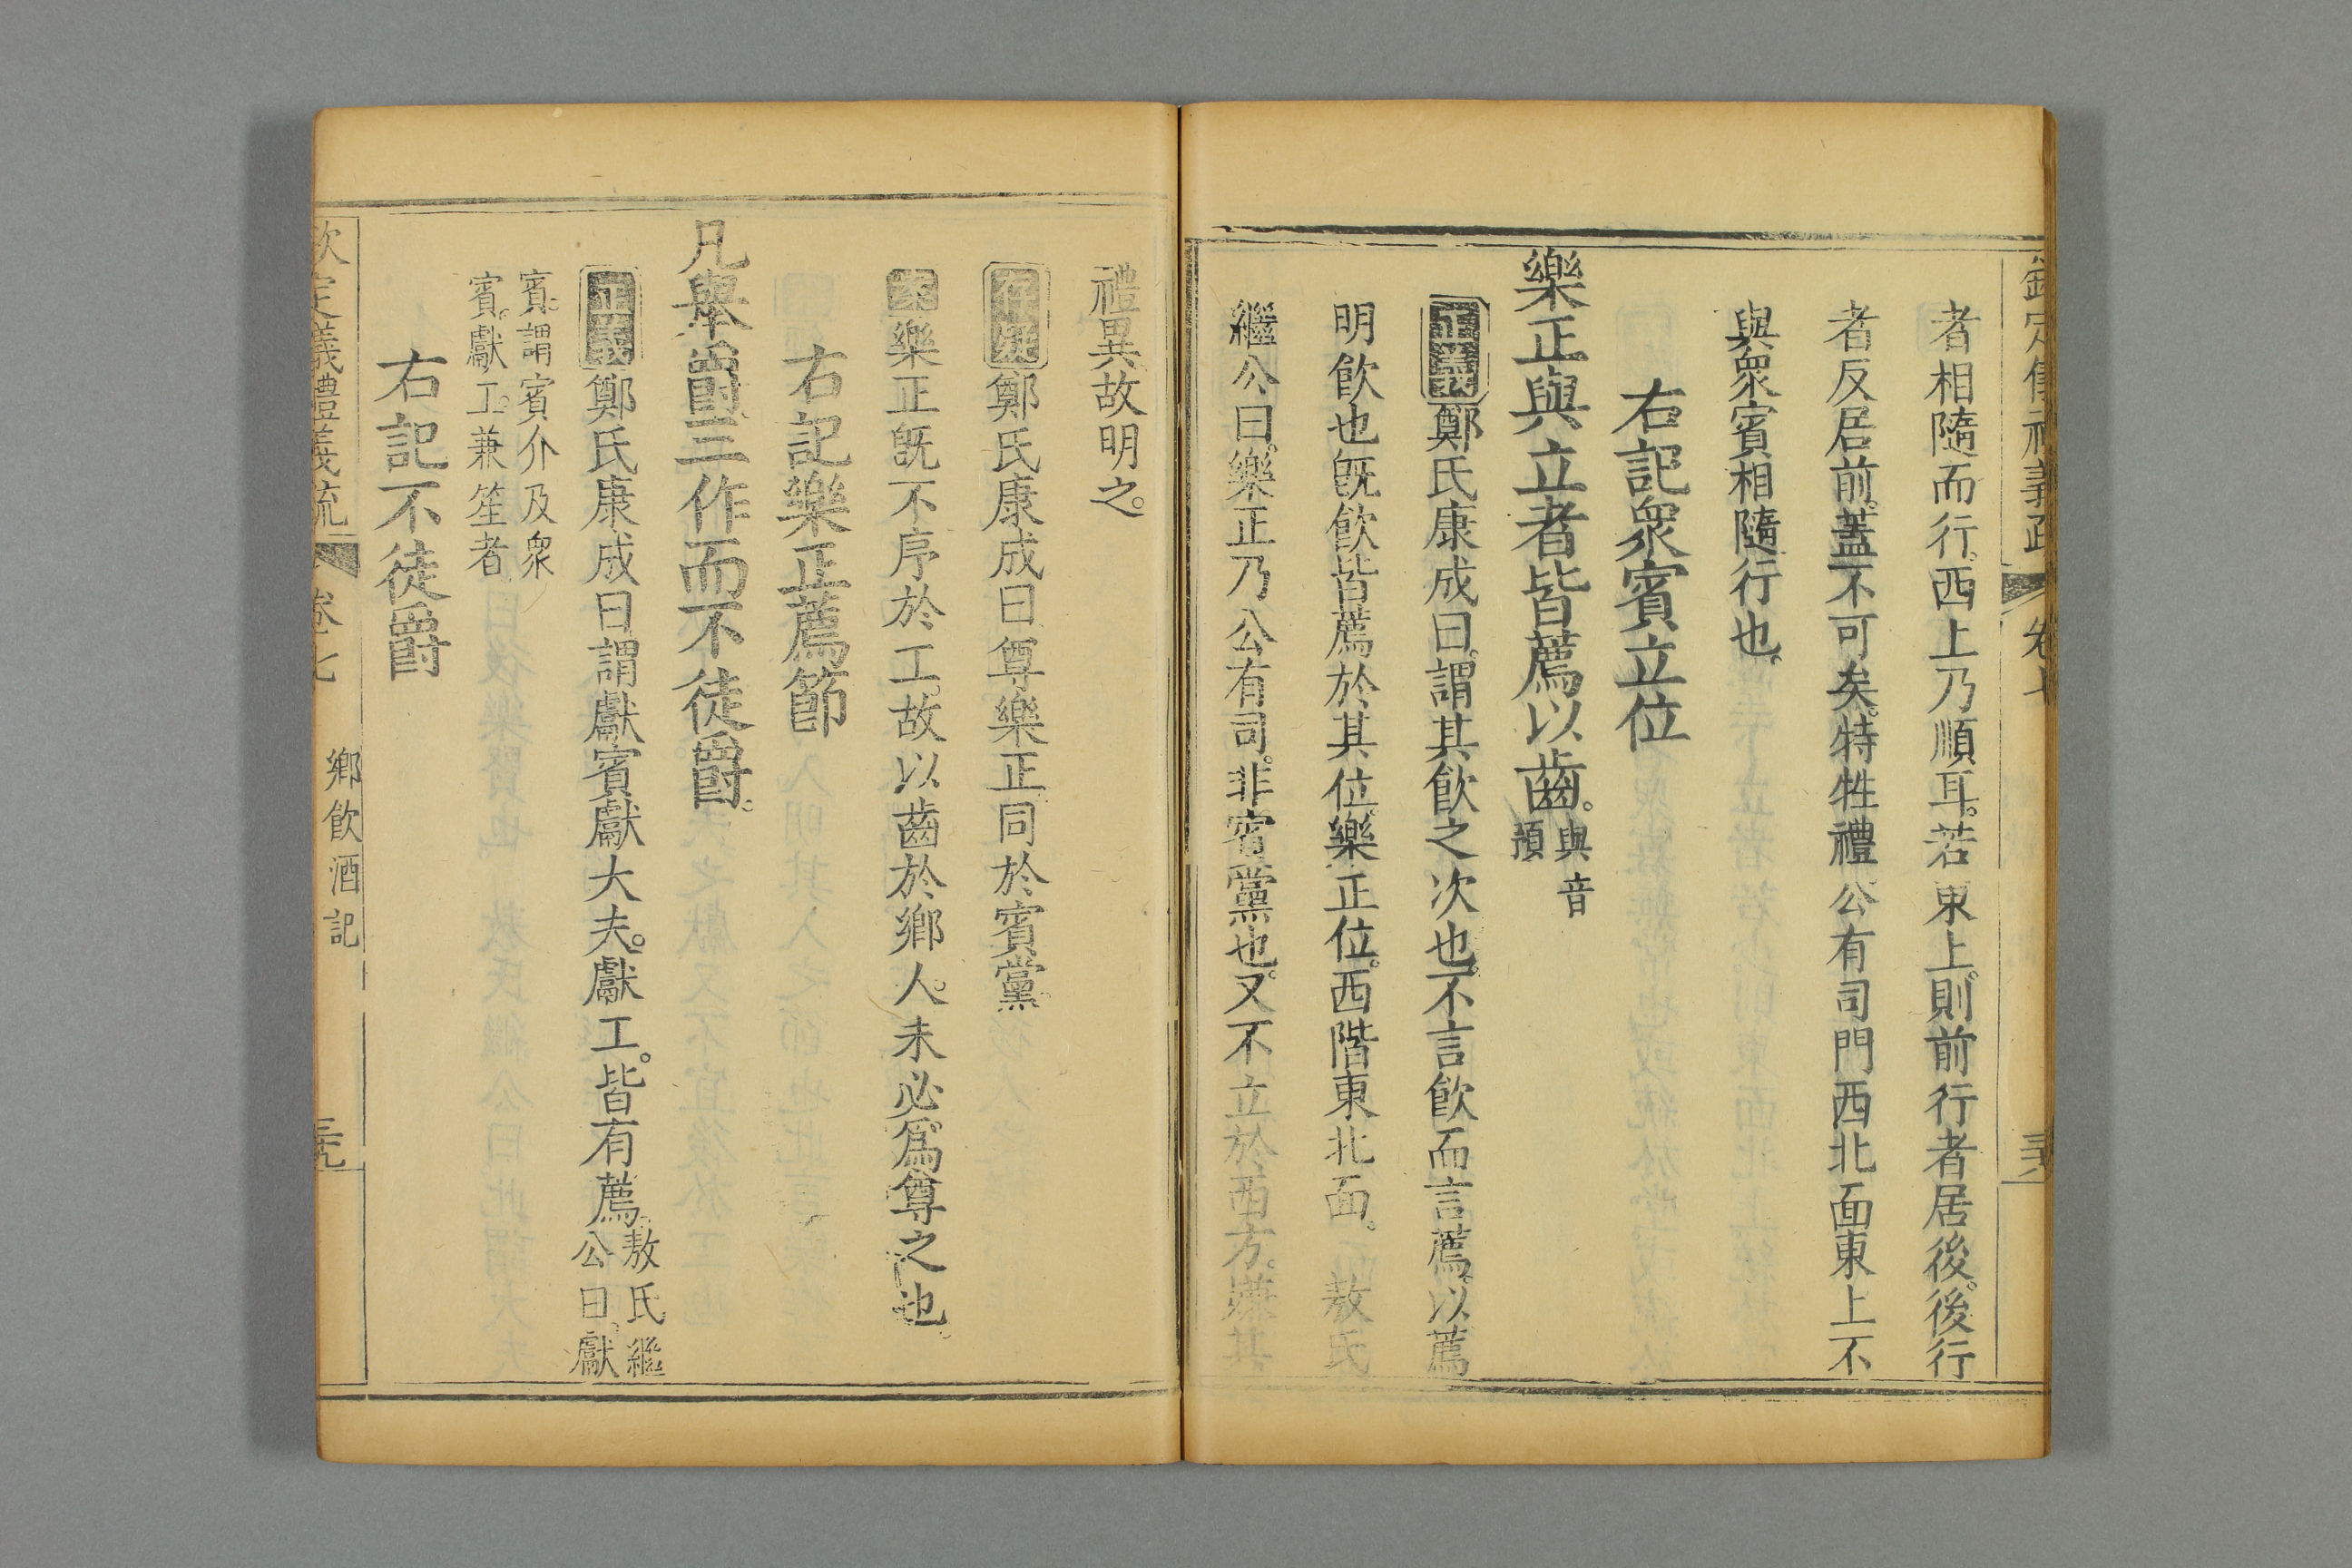 者相隨而行。西上乃順耳。若東上。則前行者居後。後行
者反居前。蓋不可矣。特牲禮公有司門西北面東上不
與衆賓相隨行也。
右記衆賓立位
樂正與立者皆薦以齒。與音預
正義鄭氏康成曰。謂其飲之次也。不言飲而言薦。以薦
明飲也既飲皆薦於其位。樂正位。西階東北面。敖氏
繼公曰。樂正乃公有司。非賓黨也。又不立於西方。嫌其
禮異故明之。
存疑鄭氏康成曰尊樂正同於賓黨
案樂正既不序於工。故以齒於鄉人。未必爲尊之也。
右記樂正薦節
凡舉爵三作而不徒爵。
正義鄭氏康成曰謂獻賓獻大夫。獻工。皆有薦。敖氏繼
公曰。獻
賓。謂賓介及衆
賓。獻工。兼笙者
右記不徒爵
欽定儀禮義疏 卷七 鄉飲酒記